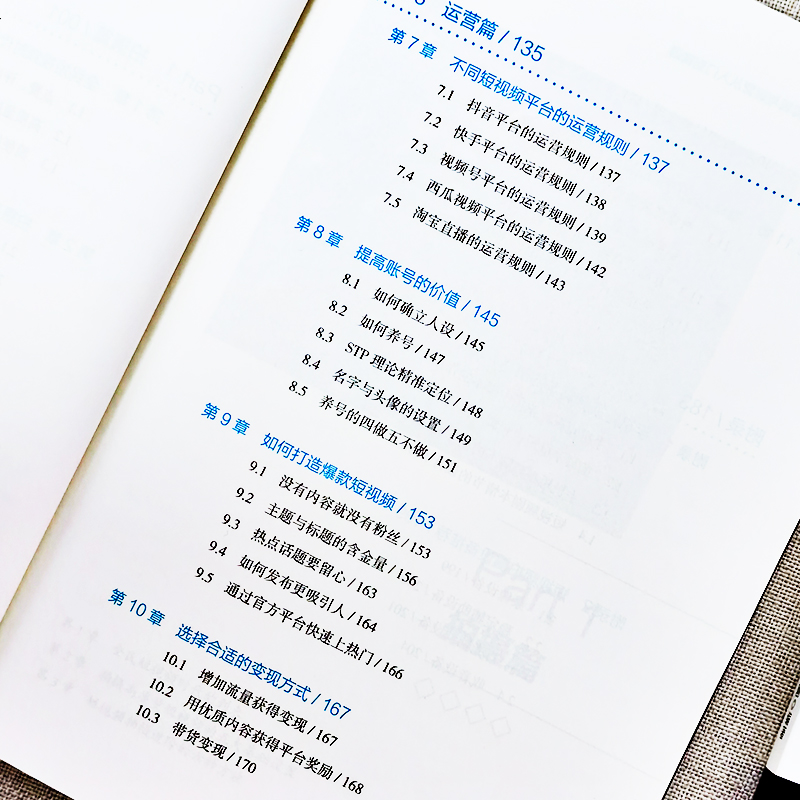 运营篇 / 135
第 7 章 不同短视频平台的运营规则 / 137
7.1 抖音平台的运营规则 / 137
7.2 快手平台的运营规则 / 138
7.3 视频号平台的运营规则 / 139
7.4 西瓜视频平台的运营规则 / 142
7.5 淘宝直播的运营规则 / 143
第 8 章 提高账号的价值 / 145
8.1 如何确立人设 / 145
8.2 如何养号 / 147
8.3 STP 理论精准定位 / 148
8.4 名字与头像的设置 / 149
8.5 养号的四做五不做 / 151
第 9 章 如何打造爆款短视频 / 153
9.1 没有内容就没有粉丝 / 153
9.2 主题与标题的含金量 / 156
9.3 热点话题要留心 / 163
9.4 如何发布更吸引人 / 164
9.5 通过官方平台快速上热门 / 166
第 10 章 选择合适的变现方式 / 167
10.1 增加流量获得变现 / 167
10.2 用优质内容获得平台奖励 / 168
10.3 带货变现 / 170